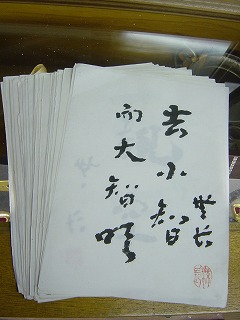 去小智
而大智明